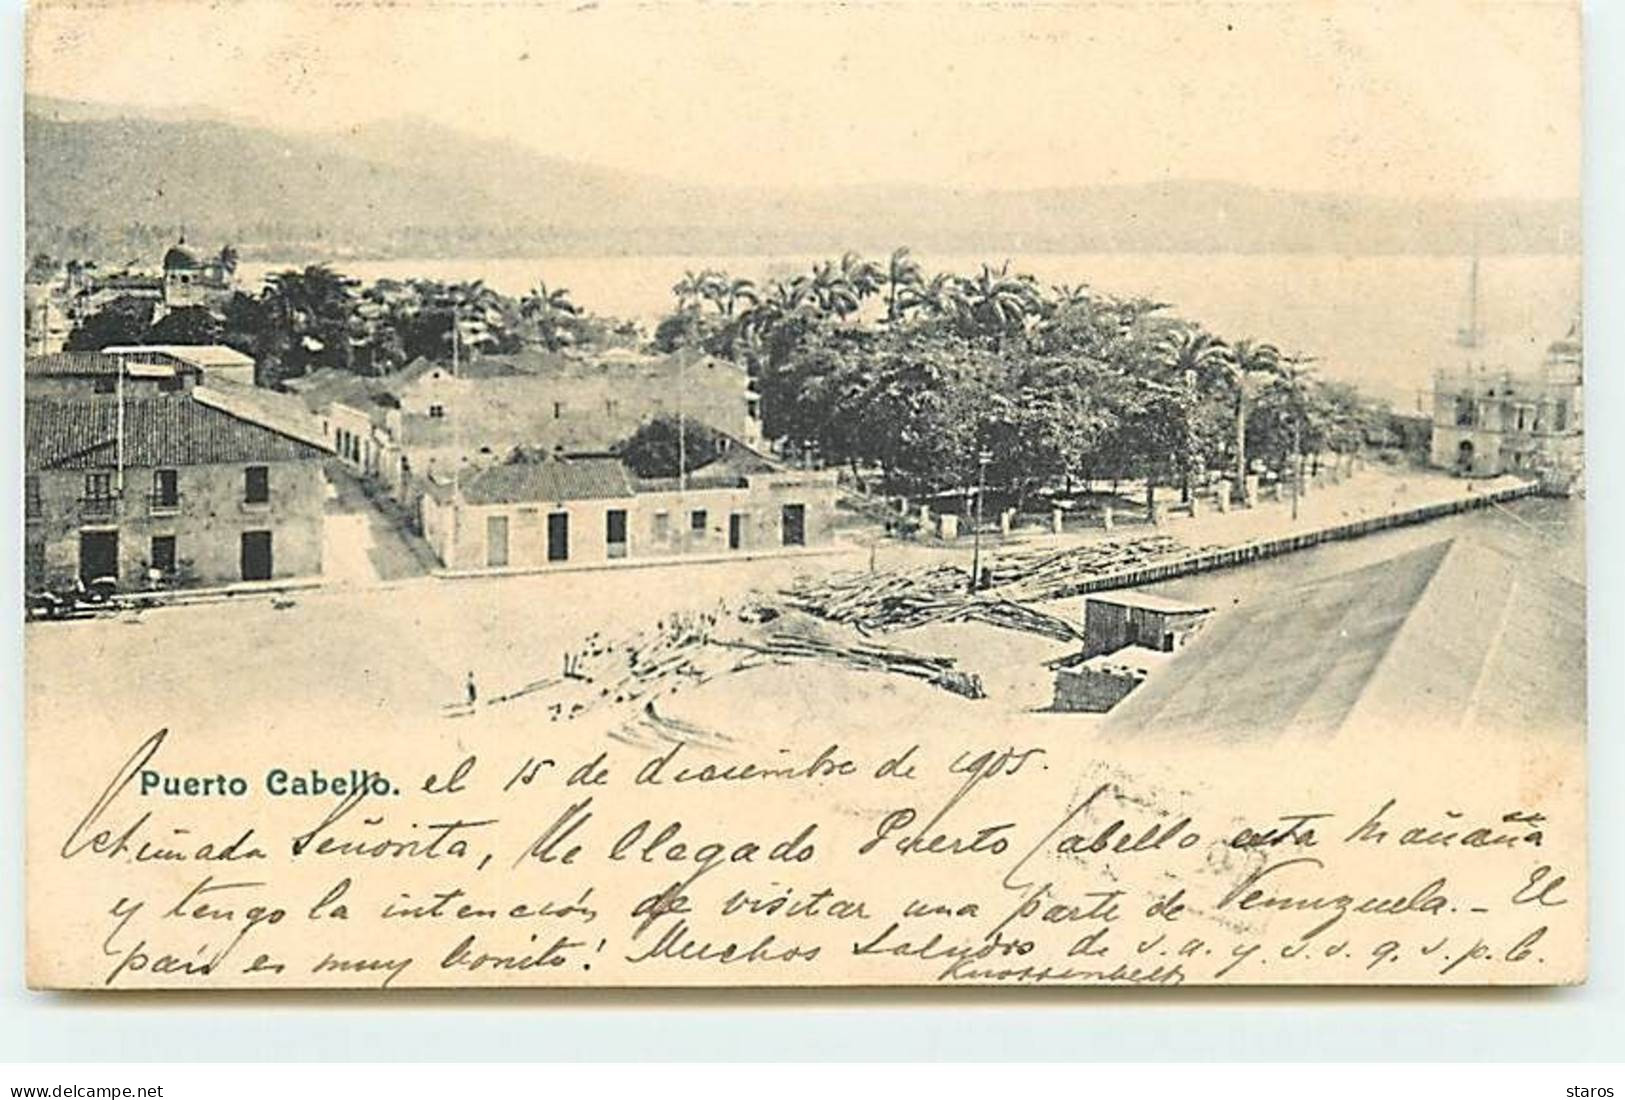 Puerto Cabello. el 15 de diciembre de 1905.
Estimada Señorita, He llegado Puerto Cabello esta mañaña
y tengo la intención de visitar una parte de Venuzuela. - El
país es muy bonito! Muchos Saludos de s. a. y s. s. q. s. p. b.
www.delcampe.net
staros